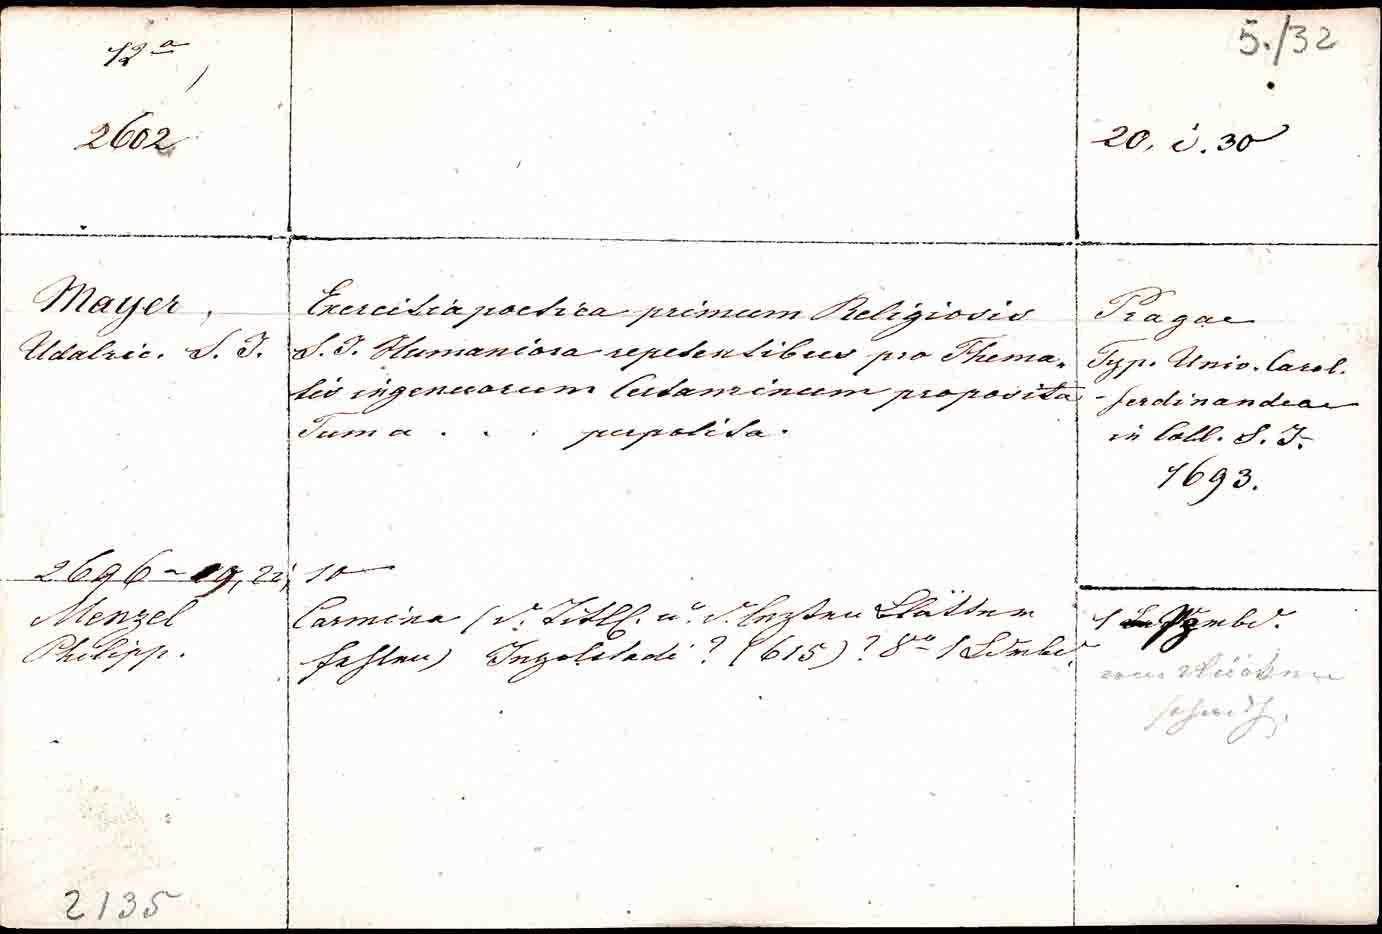 12a
5./32
2602
20. i. 30
Mayer,
Udalric. S. J.
Exercitia poetica primum Religiosis
S. J. Humaniora repetentibus pro Thema-
tis ingenuorum Certaminum proposita
Tum a . . . perpolita.
Pragae
Typ. Univ. Carol.
-ferdinandeae
in Coll. S. J.
1693.
2696 - 19, 22, 10
Menzel
Philipp.
Carmina (d. Titlbl. u. d. letzten Blätter
fehlen) Ingolstadi? (615)? 8vo 1 Ldrbd.
1 Pgmbd.
2135